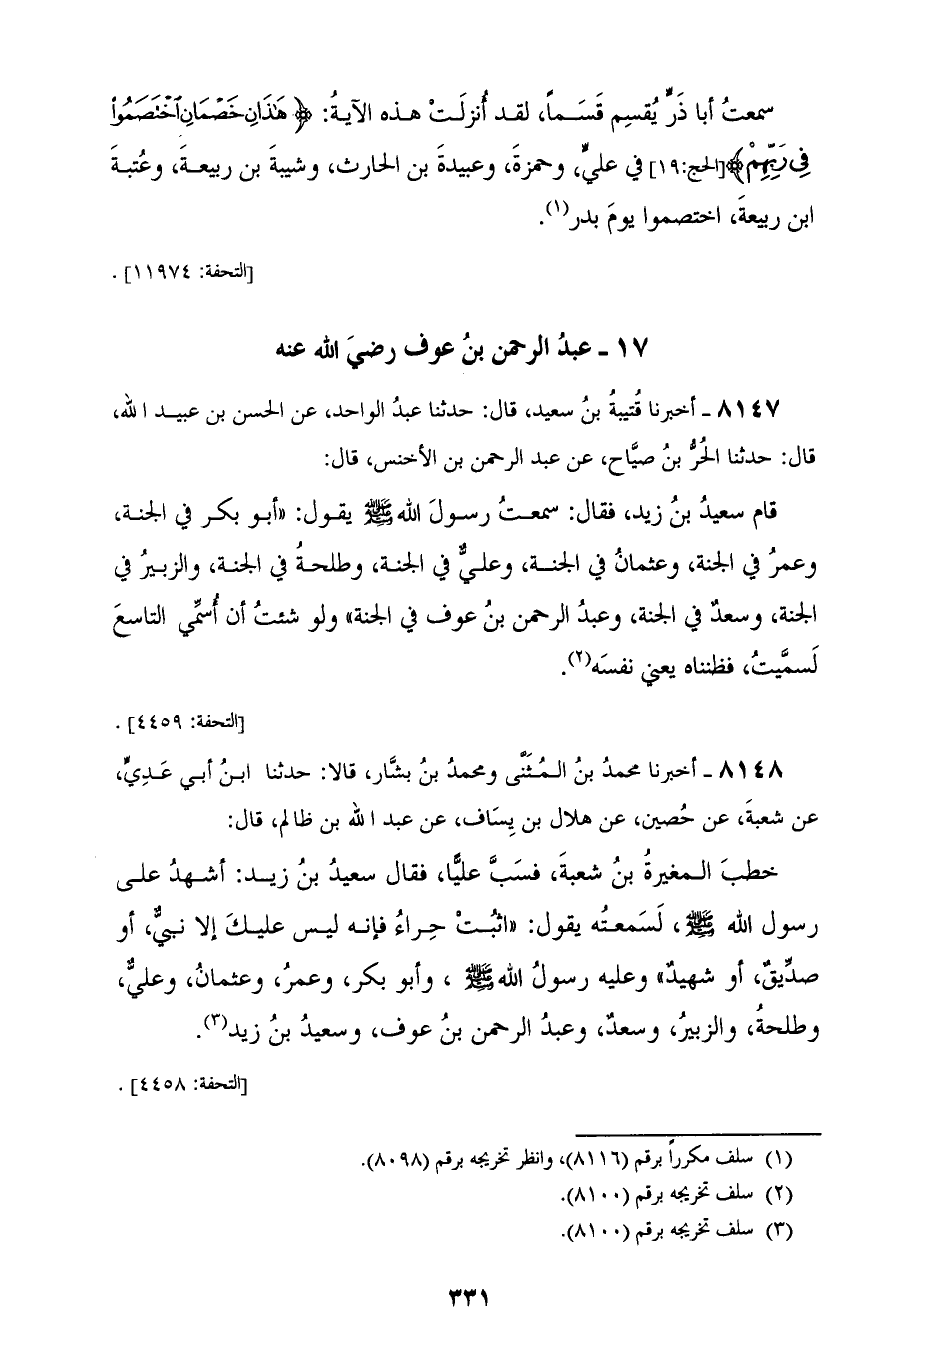 سمعتُ أبا ذَرٍّ يُقسِم قَسَـماً، لقـد أُنزلَـتْ هـذه الآيـةُ: ﴿ هَٰذَانِ خَصۡمَانِ ٱخۡتَصَمُواْ
فِي رَبِّهِمۡ﴾[الحج:١٩] في عليٍّ، وحمزةَ، وعبيدةَ بن الحارث، وشيبةَ بن ربيعـةَ، وعُتبـةَ
ابن ربيعةَ، اختصموا يومَ بدر(١).
[التحفة: ١١٩٧٤] .
١٧ ـ عبدُ الرحمن بنُ عوف رضيَ الله عنه
٨١٤٧ ـ أخبرنا قُتيبةُ بنُ سعيد، قال: حدثنا عبدُ الواحد، عن الحسن بن عبيـد الله،
قال: حدثنا الحُرُّ بنُ صيَّاح، عن عبد الرحمن بن الأخنس، قال:
قام سعيدُ بنُ زيد، فقال: سمعـتُ رسـولَ الله ﷺ يقـول: «أبـو بكـر في الجنـة،
وعمرُ في الجنة، وعثمانُ في الجنــة، وعلـيٌّ في الجنـة، وطلحـةُ في الجنـة، والزبـيرُ في
الجنة، وسعدٌ في الجنة، وعبدُ الرحمن بنُ عوف في الجنة» ولو شئتُ أن أُسمِّي التاسعَ
لَسمَّيتُ، فظنناه يعني نفسَه(٢).
[التحفة: ٤٤٥٩] .
٨١٤٨ ـ أخبرنا محمدُ بنُ الـمُثنَّى ومحمدُ بنُ بشَّار، قالا: حدثنا ابـنُ أبـي عَـدِيٍّ،
عن شعبةَ، عن حُصين، عن هلال بن يِسَاف، عن عبد الله بن ظالم، قال:
خطبَ الـمغيرةُ بنُ شعبةَ، فسَبَّ عليًّا، فقال سعيدُ بنُ زيـد: أشـهدُ علـى
رسول الله ﷺ، لَسَمعتُه يقول: «اثبُـتْ حِـراءُ فإنـه ليـس عليـكَ إلا نبـيٌّ، أو
صدِّيقٌ، أو شهيدٌ» وعليه رسولُ الله ﷺ ، وأبو بكر، وعمرُ، وعثمانُ، وعليٌّ،
وطلحةُ، والزبيرُ، وسعدٌ، وعبدُ الرحمن بنُ عوف، وسعيدُ بنُ زيد(٣).
[التحفة: ٤٤٥٨] .
(١) سلف مكرراً برقم (٨١١٦)، وانظر تخريجه برقم (٨٠٩٨).
(٢) سلف تخريجه برقم (٨١٠٠).
(٣) سلف تخريجه برقم (٨١٠٠).
٣٣١